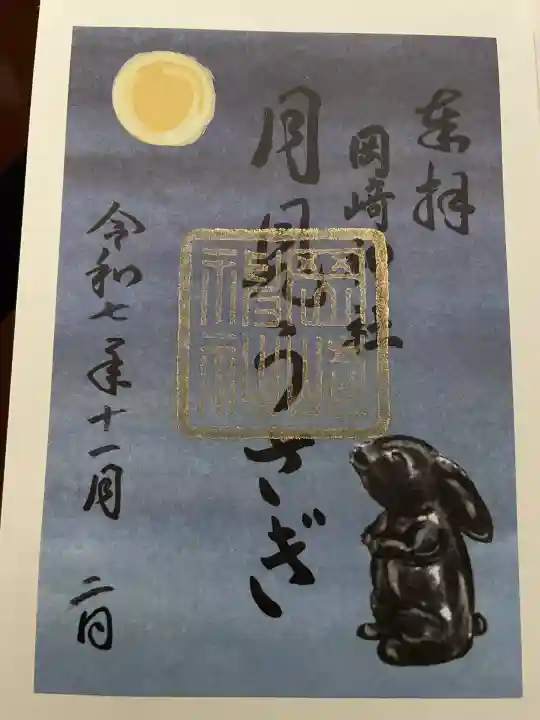 奉拝
岡崎神社
月見うさぎ
岡崎神社
令和七年十一月
二日